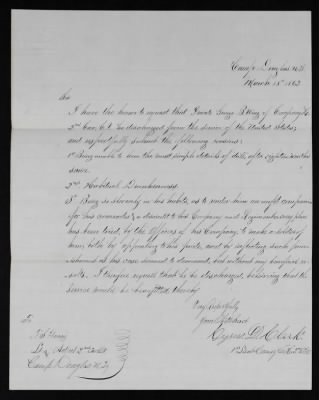 Camp Douglas U.T.
March 18th 1863
Sir
I have the honor to request that Private George B King of Company
2nd Cav. C.V. be discharged from the service of the United States;
and respectfully submit the following reasons:
1st Being unable to learn the most simple details of duty after eighteen months
service
2nd Habitual Drunkenness
3d Being so slovenly in his habits, as to render him an unfit companion
for his comrades; a disgrace to his Company and Regiment every plan
has been tried, by the officers of his Company, to make a soldier of
him, both by appealing to his pride, and by inflicting such punishment
as his case seemed to demand, but without any beneficial results.
I therefore request that he be discharged, believing that the
service would be benefitted thereby
Very Respectfully
Your Obt Servant
Cyrus D. Clark
1st Lieut Comdg Co
To
Adjt 2nd Cav C.V.
Camp Douglas U.T.